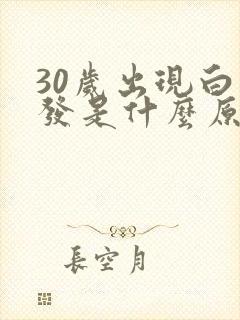 30歲出現白
發是什麼原
長空月